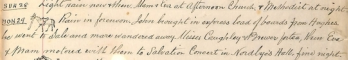 SUN 28 Light rain now & then Mam & Eva at Afternoon Church & Methodist at night.
MON 29 Rain in forenoon John brought in express load of boards from Hughes
he went to sale and mare wandered away. Misses Caughley & Brewer for tea, New Era
& Mam motored with them to Salvation Concert in Nordlyst Hall, fine night.